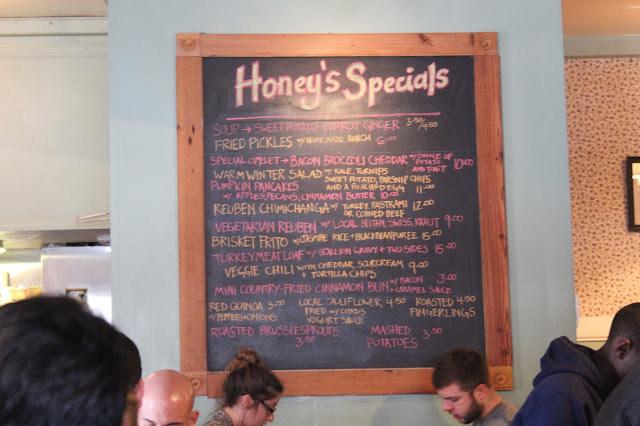 Honey's Specials
SOUP → SWEET POTATO CARROT GINGER 3.50/4.50
FRIED PICKLES W/ HOMEMADE RANCH 6.00
SPECIAL OMELET → BACON BROCCOLI CHEDDAR W/ CHOICE OF POTATO AND TOAST 10.00
WARM WINTER SALAD W/ KALE, TURNIPS SWEET POTATO, PARSNIP CHIPS AND A POACHED EGG 11.00
PUMPKIN PANCAKES
W/ APPLES, PECANS, CINNAMON BUTTER 10.00
REUBEN CHIMICHANGA W/ TURKEY, PASTRAMI OR CORNED BEEF 12.00
VEGETARIAN REUBEN W/ LOCAL SEITAN, SWISS, KRAUT 9.00
BRISKET FRITO W/ JASMINE RICE + BLACKBEAN PUREE 15.00
TURKEY MEATLOAF W/ SCALLION GRAVY + TWO SIDES 15.00
VEGGIE CHILI WITH CHEDDAR, SOUR CREAM + TORTILLA CHIPS 9.00
MINI COUNTRY-FRIED CINNAMON BUN W/ BACON + CARAMEL SAUCE 3.00
RED QUINOA 3.50 LOCAL CAULIFLOWER 4.50 ROASTED 4.50
W/ PEPPERS + ONIONS FRIED W/ CITRUS YOGURT SAUCE FINGERLINGS
ROASTED BRUSSLE SPROUTS 3.50 MASHED POTATOES 3.50